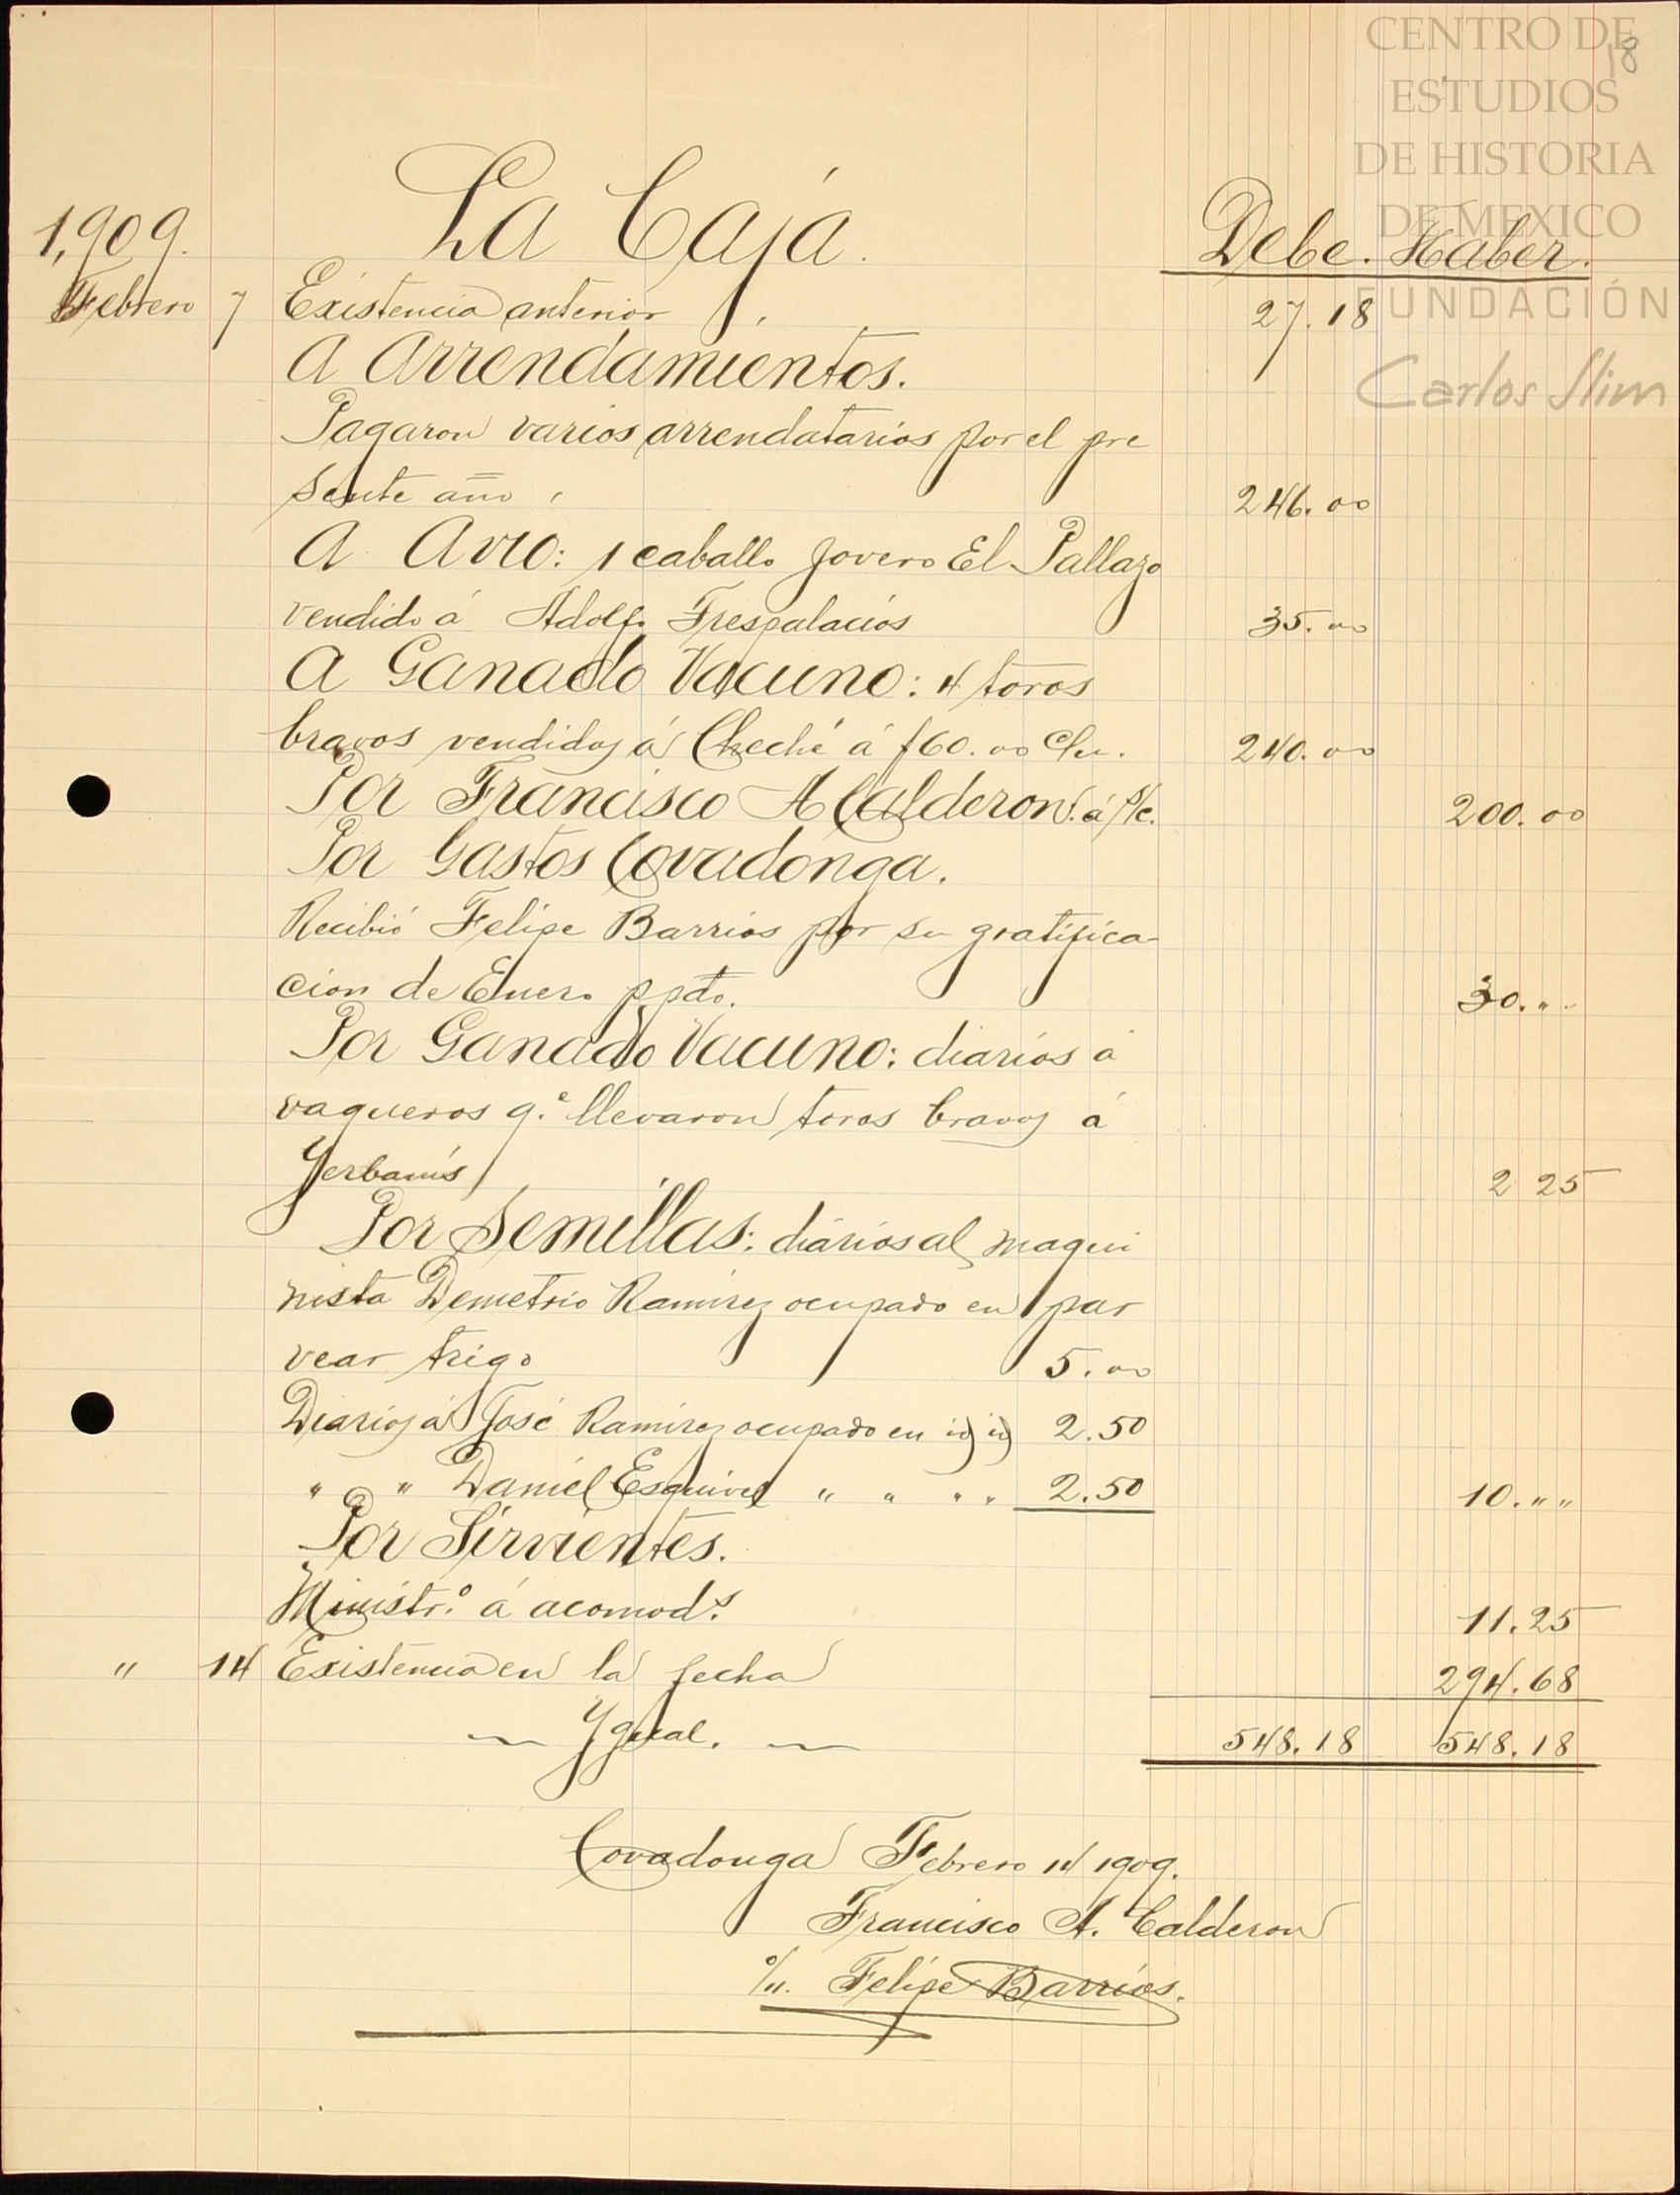 CENTRO DE
ESTUDIOS
DE HISTORIA
DE MEXICO
FUNDACIÓN
Carlos Slim
18
1,909. La Caja. Debe. Haber.
Febrero 7 Existencia anterior 27.18
A Arrendamientos.
Pagaron varios arrendatarios por el pre
sente año 246.00
A Avio: 1 caballo Jovero El Pallazo
vendido á Adolfo Trespalacios 35.00
A Ganado Vacuno: 4 toros
bravos vendidos á Cheché á $60.00 c/u. 240.00
Por Francisco A Calderon. á s/c. 200.00
Por Gastos Covadonga.
Recibió Felipe Barrios por su gratifica-
cion de Enero ppdo. 30. " "
Por Ganado Vacuno: diarios a
vaqueros q.e llevaron toros bravos á
Yerbanis 2 25
Por Semillas: diarios al maqui
nista Demetrio Ramirez ocupado en par
vear trigo 5.00
Diarios á José Ramirez ocupado en id id 2.50
" " Daniel Esquivel " " " " 2.50 10. " "
Por Sirvientes.
Ministr.o á acomod.s 11.25
" 14 Existencia en la fecha 294.68
Ygual. 548.18 548.18
Covadonga Febrero 14 1909.
Francisco A. Calderon
Felipe Barrios.